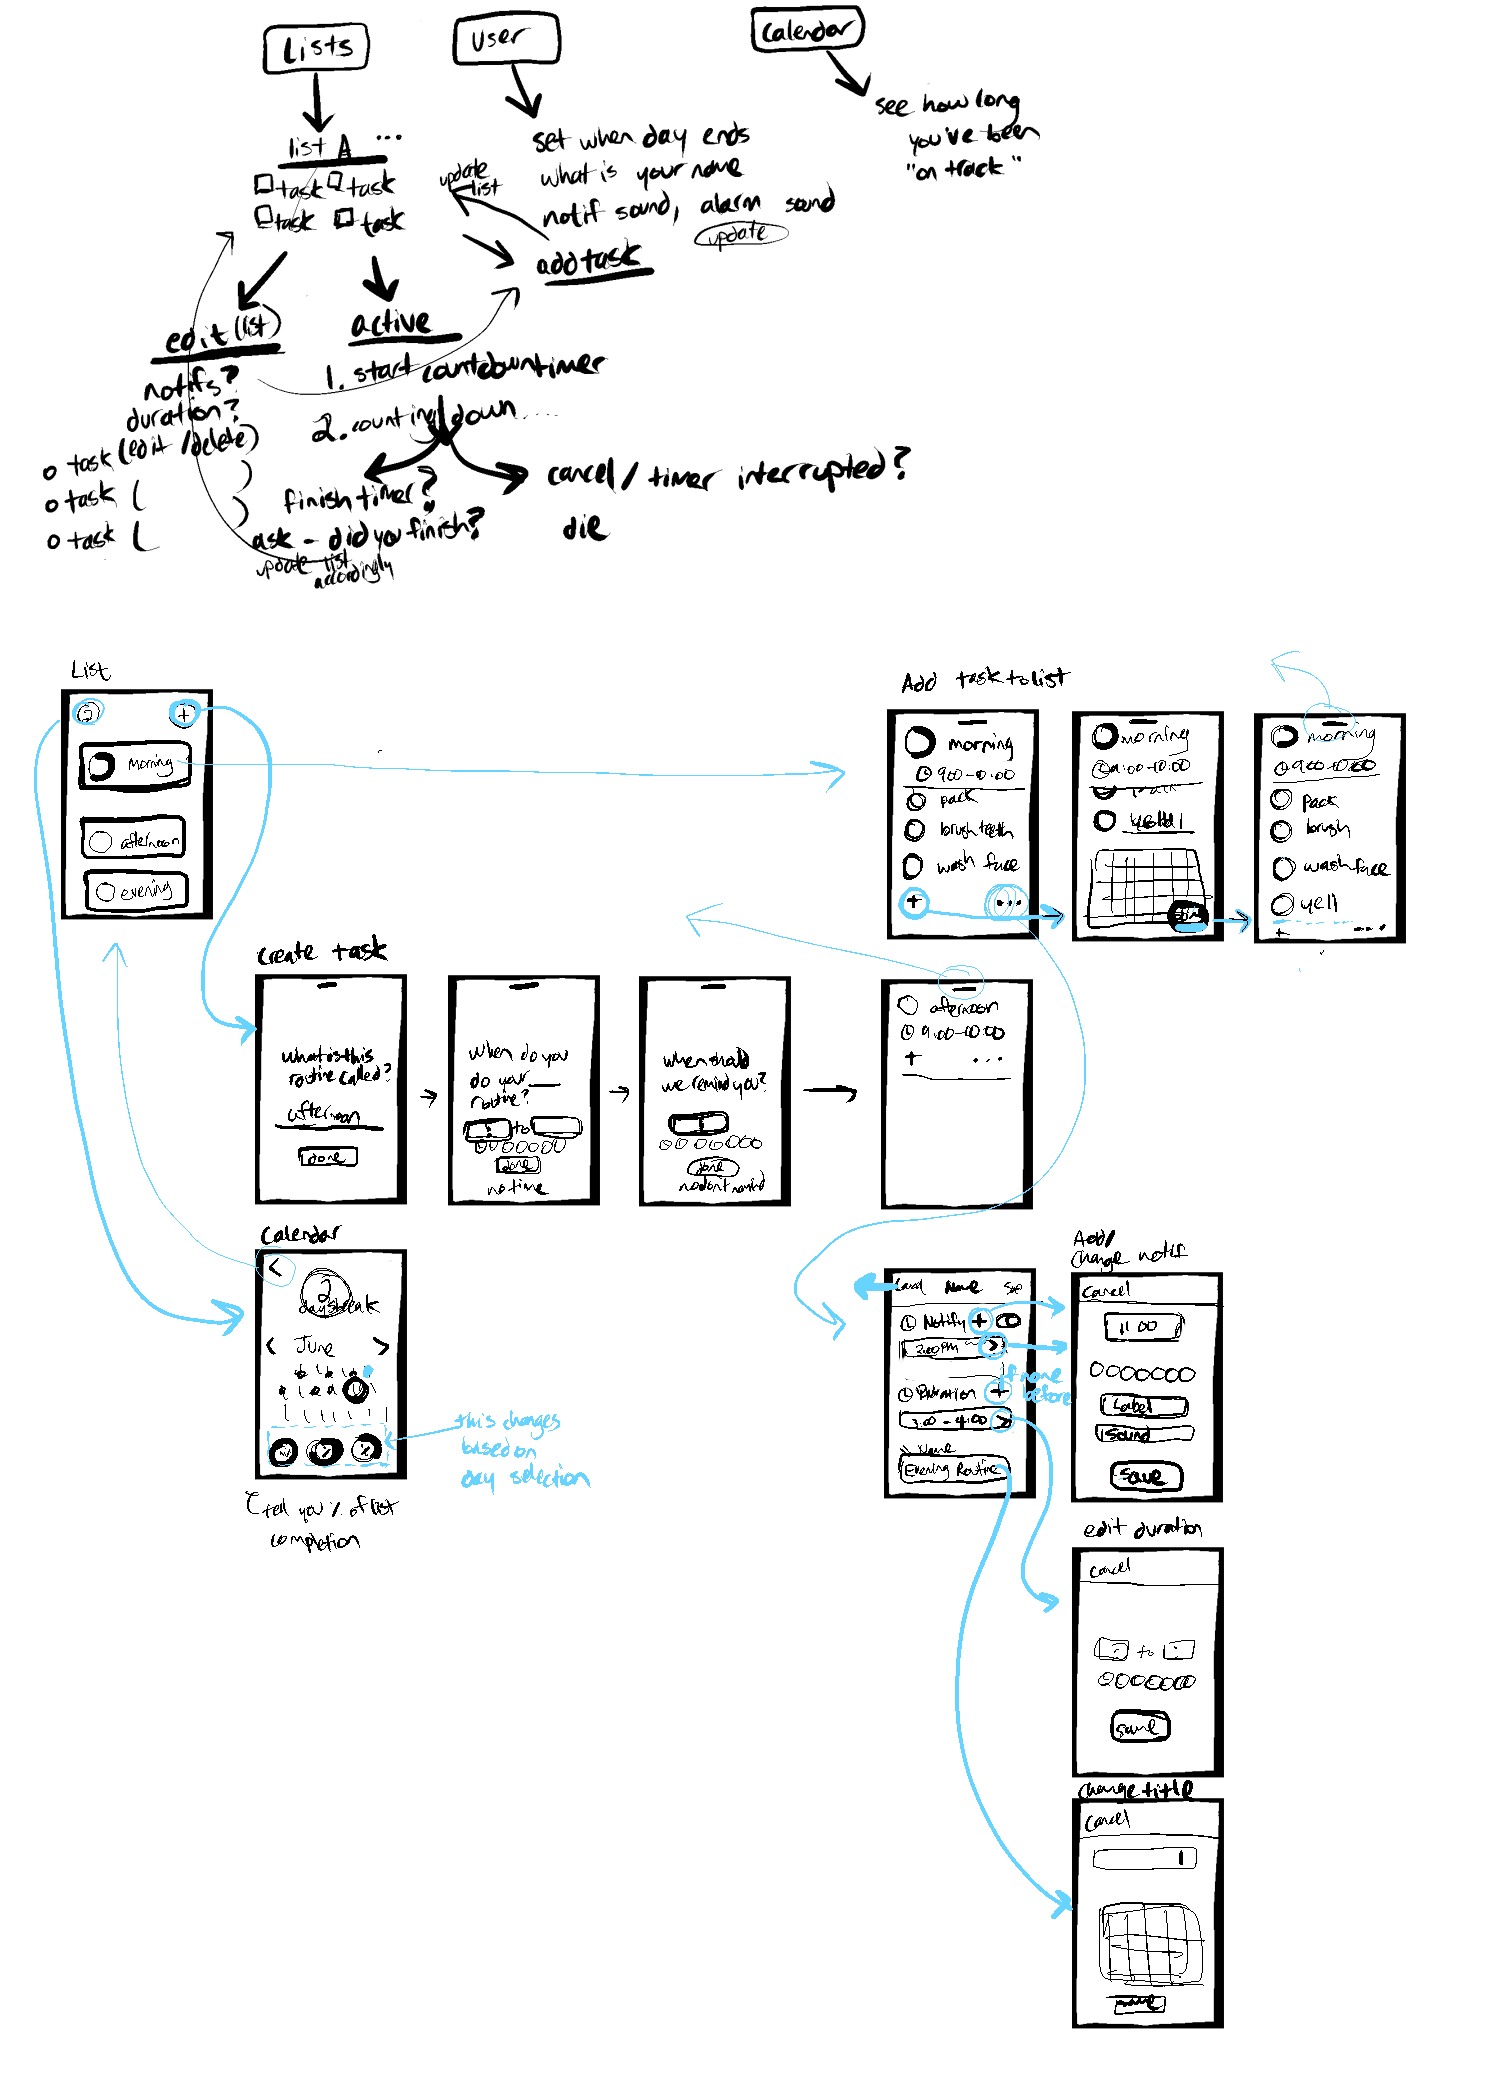 Lists
User
Calendar
see how long
you've been
"on track"
list A ...
task task
task task
update
list
set when day ends
what is your name
notif sound, alarm sound
update
add task
edit (list)
active
notifs?
duration?
task (edit / delete)
task (     )
task (     )
1. start countdown timer
2. counting down....
finish timer?
ask - did you finish?
update list
accordingly
cancel / timer interrupted?
die
List
+
Morning
afternoon
evening
Add task to list
morning
9:00-10:00
pack
brush teeth
wash face
+ ...
morning
9:00-10:00
yell
morning
9:00-10:00
pack
brush
wash face
yell
+ ...
Create task
What is this
routine called?
afternoon
done
When do you
do your ___
routine?
: to
done
no time
when should
we remind you?
done
no dont remind
afternoon
9:00-10:00
+ ...
Calendar
<
2
day streak
< June >
this changes
based on
day selection
tell you % of list
completion
Cancel Name
Notify +
2:00 PM >
if none
before
Duration +
3:00 - 4:00 >
Name
Evening Routine
Add/
change notif
Cancel
11:00
Label
Sound
Save
edit duration
Cancel
: to :
save
change title
Cancel
save